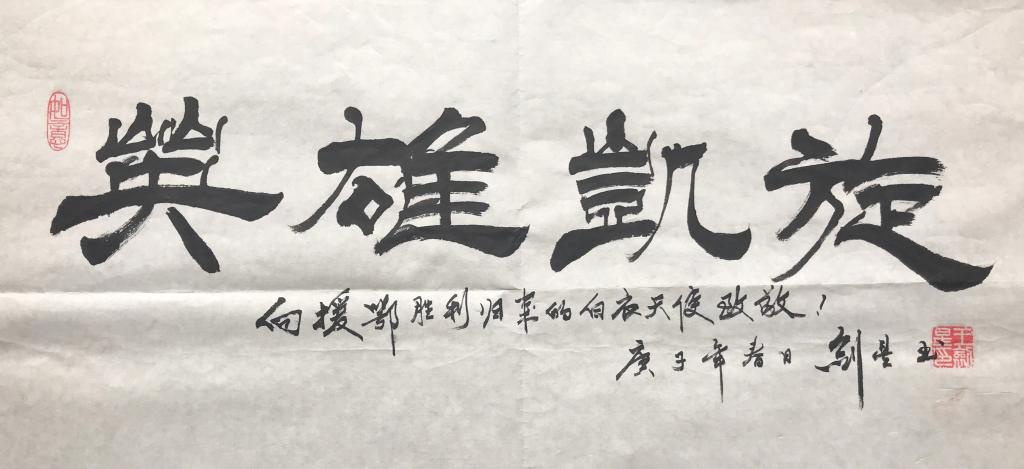 英雄凱旋
向援鄂胜利归来的白衣天使致敬！
庚子年春日 剑星
如意